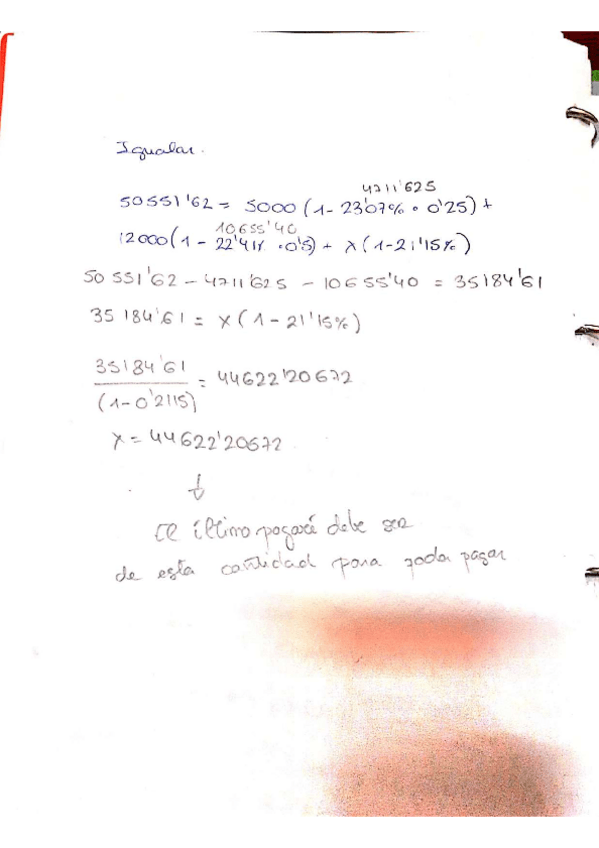 Igualar.
4711'625
50551'62 = 5000 (1 - 23'07% · 0'25) +
10655'40
12000 (1 - 22'41% · 0'5) + x (1 - 21'15%)
50551'62 - 4711'625 - 10655'40 = 35184'61
35184'61 = x (1 - 21'15%)
35184'61
= 44622'20672
(1 - 0'2115)
x = 44622'20672
↓
El último pagaré debe ser
de esta cantidad para poder pagar